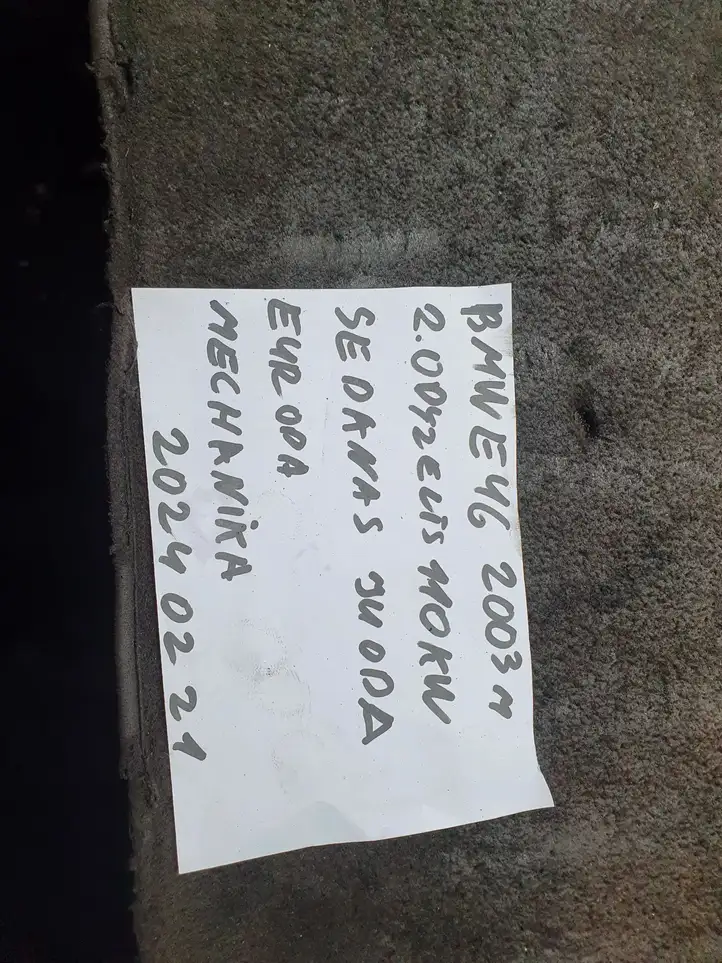 BMW E46 2003 m
2.0 DYZELIS 110KW
SEDANAS JUODA
EUROPA
MECHANIKA
2024 02 21